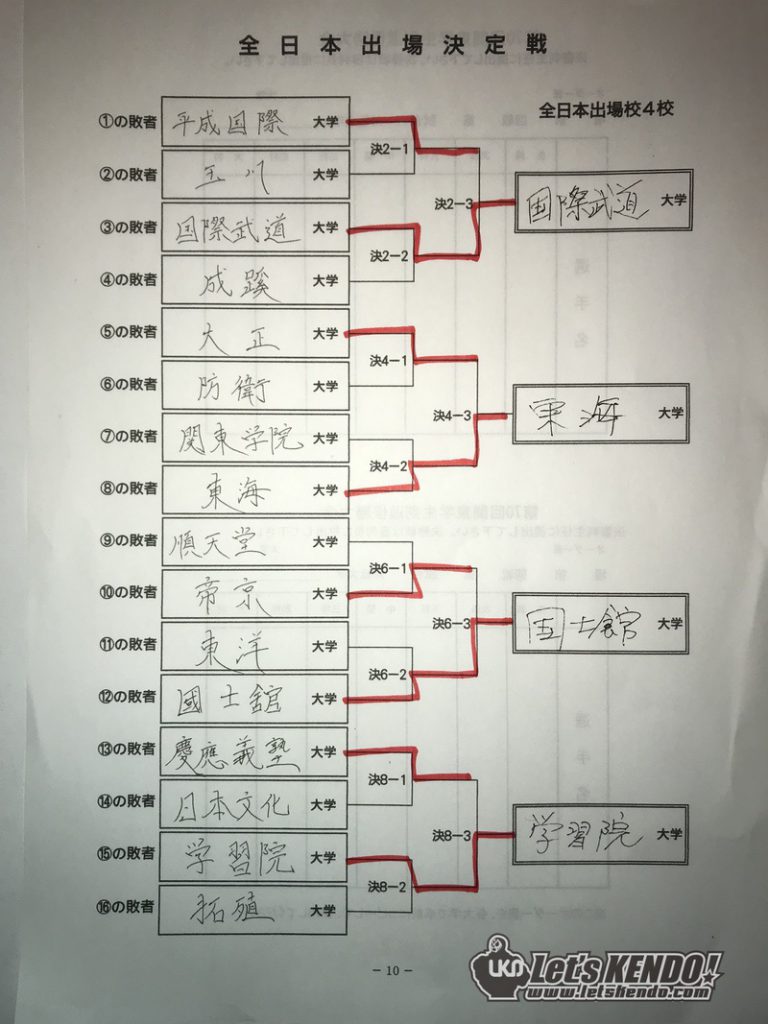 全日本出場決定戦
全日本出場校4校
①の敗者 平成国際 大学
決2-1
②の敗者 玉川 大学
決2-3
国際武道 大学
③の敗者 国際武道 大学
決2-2
④の敗者 成蹊 大学
⑤の敗者 大正 大学
決4-1
⑥の敗者 防衛 大学
決4-3
東海 大学
⑦の敗者 関東学院 大学
決4-2
⑧の敗者 東海 大学
⑨の敗者 順天堂 大学
決6-1
⑩の敗者 帝京 大学
決6-3
国士舘 大学
⑪の敗者 東洋 大学
決6-2
⑫の敗者 國士舘 大学
⑬の敗者 慶應義塾 大学
決8-1
⑭の敗者 日本文化 大学
決8-3
学習院 大学
⑮の敗者 学習院 大学
決8-2
⑯の敗者 拓殖 大学
- 10 -
LKN Let's KENDO!
www.letskendo.com